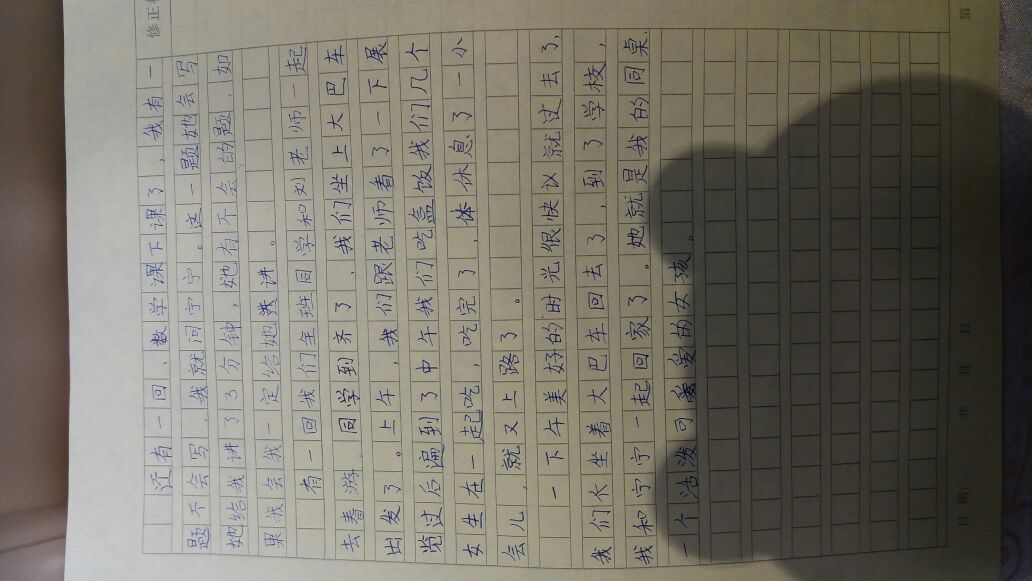 修正
还有一回、数学课下课了，我有一
题不会写，我就问宁宁。这一题她会写
她给我讲了3分钟，她有不会的题，如
果我会我一定给她讲。
有一回我们全班同学和刘老师一起
去春游 同学到齐了，我们坐上大巴车
出发了。上午，我们跟老师看了一下展
览过后遍到了中午我们吃盒饭我们几个
女生在一起吃，吃完了，体休息了一小
会儿，就又上路了。
一下午美好的时光很快议就过去了，
我们大坐着大巴车回去了，到了学校，
我和宁宁一起回家了。她就是我的同桌
一个活泼可爱的女孩。
日期： 年 月 日
第